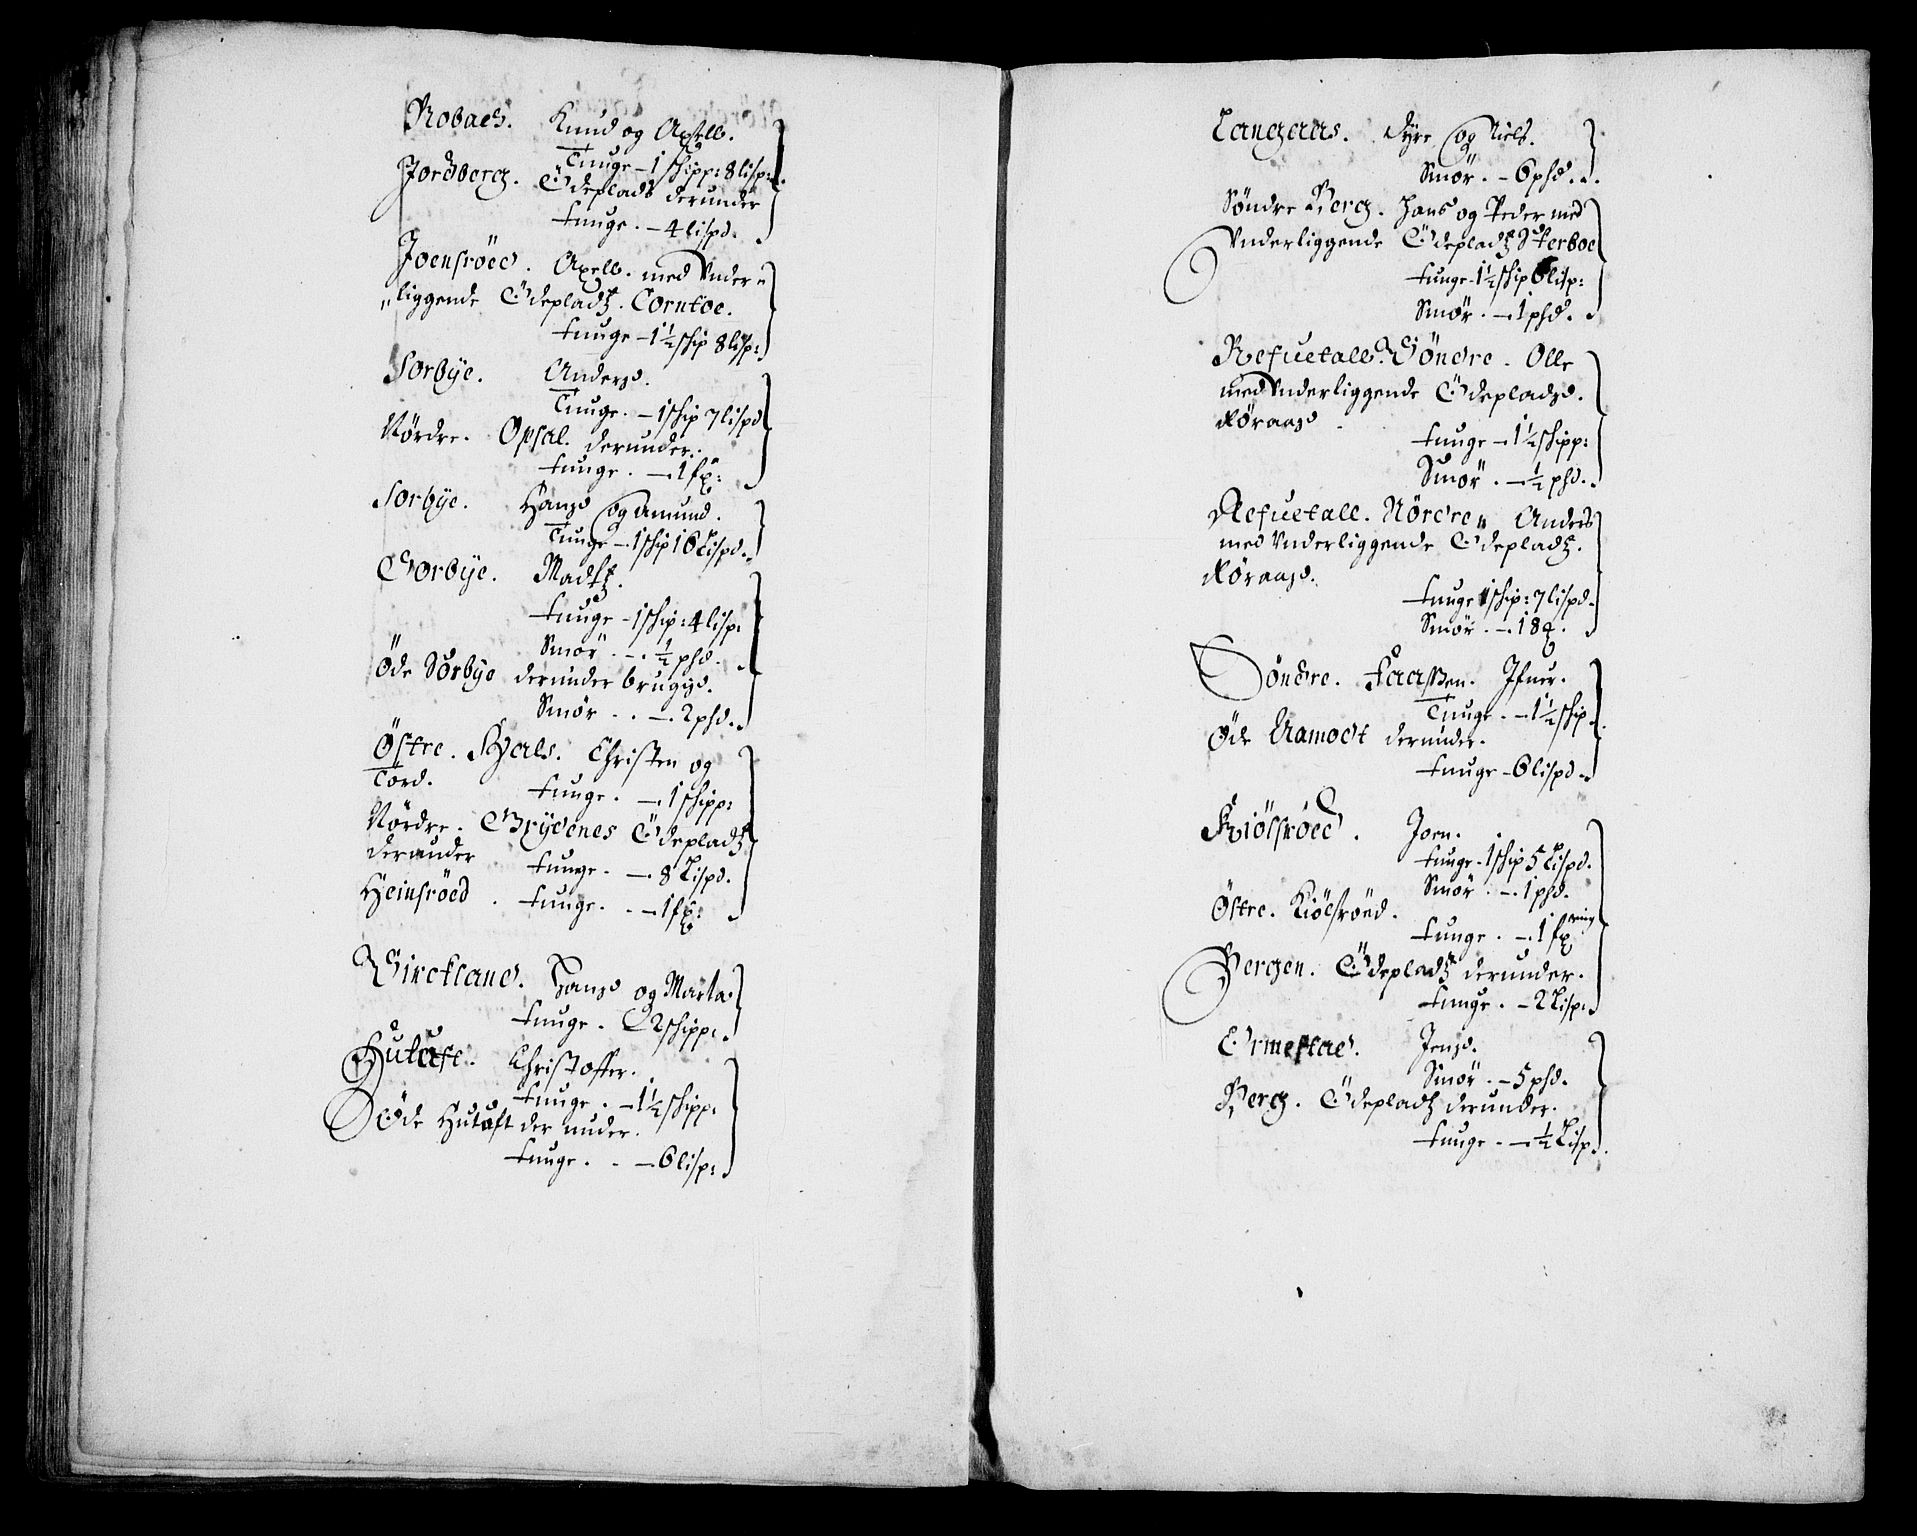 Robach. Knud og Axell.
Tunge - 1 schipp: 8 lisp:
Jordberg. Ödeplads derunder
tunge. - 4 lispd.
Joensröed. Axell. med Under-
liggende Ödepladtz. Torntoe.
tunge - 1½ schip 8 lisp:
Sorbÿe. Anders.
Tunge. - 1 schip 7 lispd
Nördre. Opsal. derunder.
tunge. - 1 fx:
Sorbÿe. Hans og Amund.
Tunge - 1 schip 16 Lispd.
Sorbÿe. Madtz.
tunge - 1 schip: 4 lisp:
Smör. - ½ phd.
Öde Sörbÿe derunder brugis.
Smör . . - 2 phd.
Östre. Hals. Christen og
Tord. tunge. - 1 schipp:
Nördre. Brÿdenes Ödepladtz
derunder tunge. - 8 Lispd.
Heinsröed. tunge. - 1 fx:
Wirckland. Hans og Marta
tunge. 2 schipp:
Hutuft. Christoffer.
tunge. - 1½ schipp:
Öde Hutuft der under.
tunge. - 6 lisp:
Langaas. Sÿre og Niels.
Smör. - 6 phd.
Söndre Berg. Hans og Peder med
Underliggende Ödepladtz Sterboe
tunge - 1½ schip 6 lisp:
Smör. - 1 phd.
Refuetall. Söndre. Olle
med Underliggende Ödeplads.
Röraas
tunge - 1½ schipp:
Smör. - ½ phd.
Refuetall. Nördre. Anders
med Underliggende Ödepladtz.
Röraas.
tunge 1 schip: 7 lispd.
Smör. - 18
Söndre. Faassen. Ifuer.
Tunge. - 1½ schip.
Öde Aamodt derunder.
tunge - 6 lispd
Kiölsröed. Joen.
tunge - 1 schip 5 Lispd.
Smör. - 1 phd.
Östre. Kiölsröed.
tunge. - 1 fx
Bergen. Ödepladtz derunder.
tunge. - 2 Lisp:
Ermestad. Jens.
Smör. - 5 phd.
Berg. Ödepladtz derunder.
tunge. - ½ Lisp.